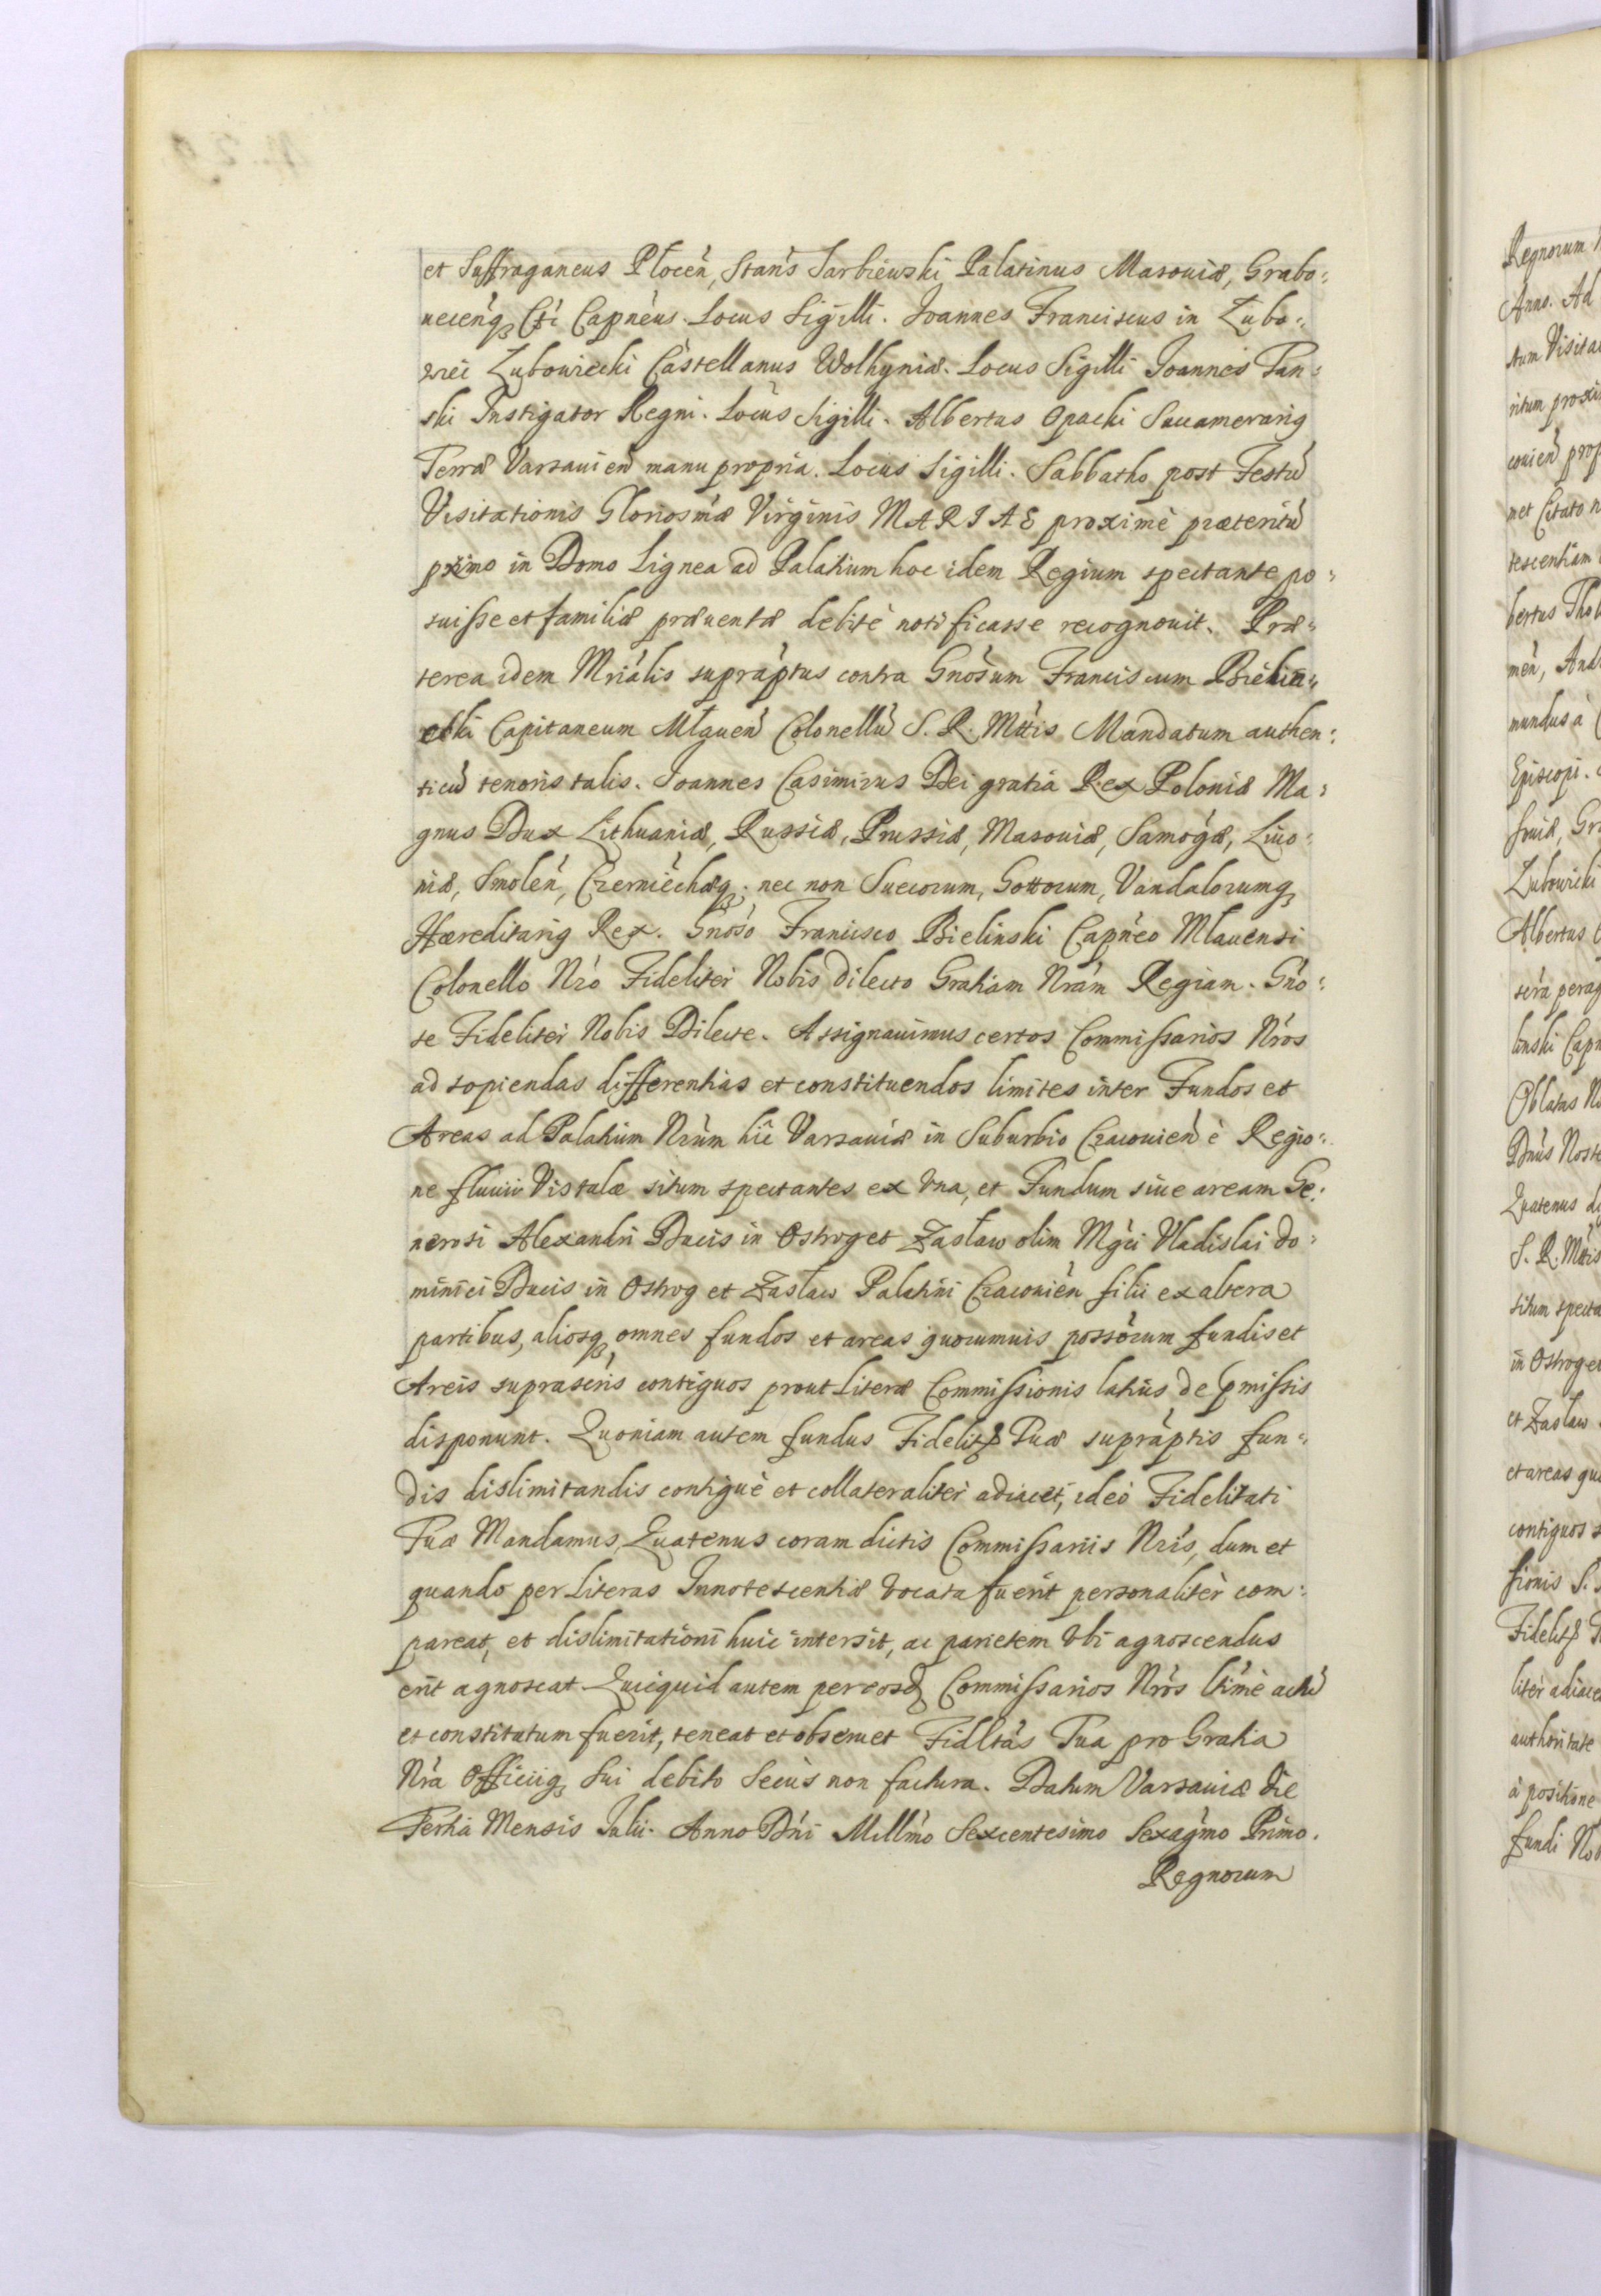 et Suffraganeus Płocen̄, Stan̄s Sarbiewski Palatinus Masouiæ, Grabo:
uecenq₃ Capn̄eus. Locus Sigilli. Joannes Franciscus in Lubo:
wiec Lubowiecki Castellanus Wolhyniæ. Locus Sigilli Joannes Tan:
ski Instigator Regni. Locus Sigilli. Albertus Opacki Succamerariꝯ
Terræ Varsauien̄ manu propria. Locus Sigilli. Sabbatho post Festū
Visitationis Gloriosm̄æ Virginis MARIAE proximè præteritū
pximo in Domo Lignea ad Palatium hoc idem Regium spectante po:
suisse et familiæ præuentæ debitè notificasse recognouit. Præ:
terea idem Mriālis suprāptus contra Gnōsum Franciscum Bielin:
ski Capitaneum Młauen̄ Colonellū S. R. Mttis Mandatum authen:
ticū tenoris talis. Joannes Casimirus Dei gratia Rex Poloniæ Ma:
gnus Dux Lithuaniæ, Russiæ, Prussiæ, Masouiæ, Samog̃æ, Liuo:
niæ, Smolen̄, Czerniēchæq₃. nec non Suecorum, Gottorum, Vandalorumq₃
Hæreditariꝯ Rex. Gnōso Francisco Bielinski Capn̄eo Mlauensi
Colonello Nrō Fideliter Nobis Dilecto Gratiam Nrām Regiam. Gnō:
se Fideliter Nobis Dilecte. Assignauimus certos Commissarios Nrōs
ad sopiendas differentias et constituendos limites inter Fundos et
Areas ad Palatium Nrūm hîc Varsauiæ in Suburbio Cracouien̄ è Regio:
ne fluuii Vistulæ situm spectantes ex vna, et Fundum siue aream Ge:
nerosi Alexandri Ducis in Ostrog et Zasław olim Mgci Vladislai Do:
minici Ducis in Ostrog et Zasław Palatini Cracouien̄ filii ex altera
partibus, aliosq₃ omnes fundos et areas quorumuis possōrum fundis et
Areis suprascris̄ contiguos prout Literæ Commissionis latiùs de pmissis
disponunt. Quoniam autem fundus Fidelitꝭ Tuæ suprāptis fun:
dis dislimitandis contiguè et collateraliter adiacet, ideò Fidelitati
Tuæ Mandamus, Quatenus coram dictis Commissariis Nrīs, dum et
quando per Literas Innotescentiæ vocata fuerit personalitèr com:
pareat, et dislimitationi huic intersit, ac parietem vbi agnoscendus
erit agnoscat. Quicquid autem per eosd Commissarios Nrōs ltīmè actū
et constitutum fuerit, teneat et obseruet Fidltās Tua pro Gratia
Nrā Officiiq₃ sui debito secùs non factura. Datum Varsauiæ die
Tertia Mensis Julii. Anno Dn̄i Millm̄o Sexcentesimo Sexag̃mo Primo.
Regnorum
Regnorum
Anno. Ad
tum Visita
ritum proxi
couien̄ prop
met Citato n
tescentiam
bertus Thol
men̄, And
mundus à
Episcopi.
souiæ, Gra
Lubowicki
Albertus
serà perag
linski Capn
Oblatus N
Dnūs Nost
Quatenus di
S. R. Mttis
situm specta
in Ostrog et
et Zasław
et areas qu
contiguos s
sionis S.
Fidelitꝭ T
liter adiace
authoritate
à positione
fundi Nob